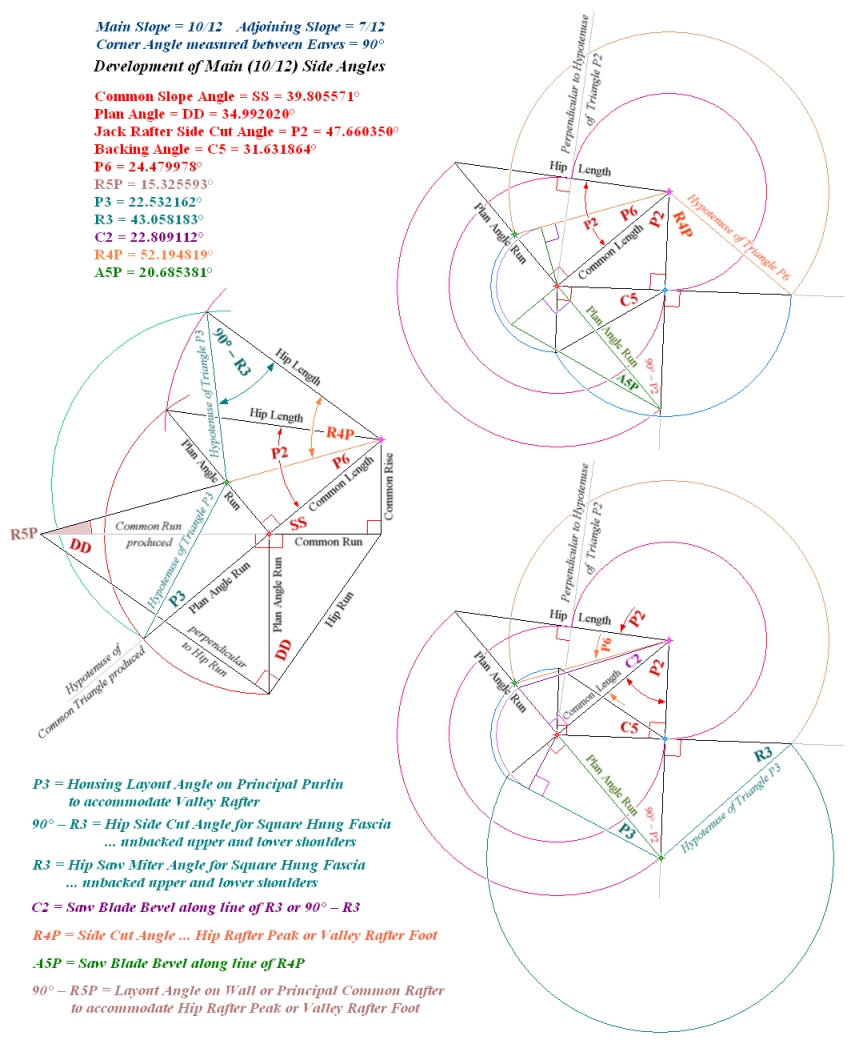 Main Slope = 10/12 Adjoining Slope = 7/12
Corner Angle measured between Eaves = 90°
Development of Main (10/12) Side Angles
Common Slope Angle = SS = 39.805571°
Plan Angle = DD = 34.992020°
Jack Rafter Side Cut Angle = P2 = 47.660350°
Backing Angle = C5 = 31.631864°
P6 = 24.479978°
R5P = 15.325593°
P3 = 22.532162°
R3 = 43.058183°
C2 = 22.809112°
R4P = 52.194819°
A5P = 20.685381°
Perpendicular to Hypotenuse
of Triangle P2
Hip Length
Plan Angle
Run
P2
P6
P2
R4P
Common Length
Hypotenuse of Triangle P6
C5
Plan Angle Run
90° – P2
A5P
90° – R3
Hypotenuse of Triangle P3
Hip Length
Hip Length
R4P
P2
P6
Plan Angle
Run
Common Length
Common Rise
SS
R5P
Common Run
produced
Common Run
DD
Hypotenuse of Triangle P3
P3
Plan Angle Run
Plan Angle Run
Hip Run
perpendicular
to Hip Run
DD
Hypotenuse of
Common Triangle produced
Perpendicular to Hypotenuse
of Triangle P2
Hip Length
P2
P6
C2
P2
Plan Angle
Run
Common Length
C5
R3
Plan Angle Run
90° – P2
P3
Hypotenuse of Triangle P3
P3 = Housing Layout Angle on Principal Purlin
to accommodate Valley Rafter
90° – R3 = Hip Side Cut Angle for Square Hung Fascia
... unbacked upper and lower shoulders
R3 = Hip Saw Miter Angle for Square Hung Fascia
... unbacked upper and lower shoulders
C2 = Saw Blade Bevel along line of R3 or 90° – R3
R4P = Side Cut Angle ... Hip Rafter Peak or Valley Rafter Foot
A5P = Saw Blade Bevel along line of R4P
90° – R5P = Layout Angle on Wall or Principal Common Rafter
to accommodate Hip Rafter Peak or Valley Rafter Foot